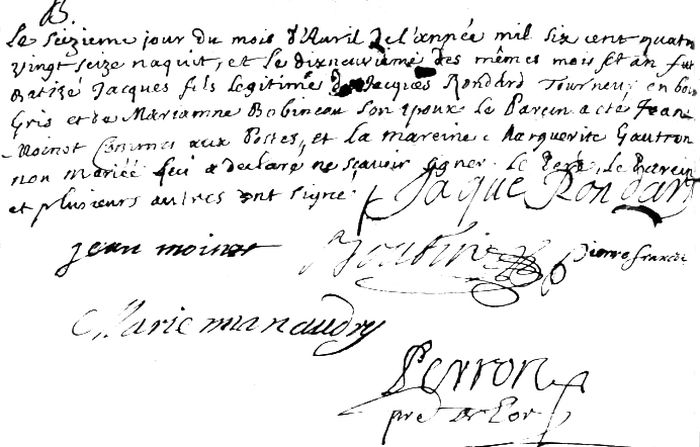 B.
Le seizieme jour du mois d'Avril de l'année mil six cent quatre
vingt seize naquit, et le dixneuvieme des mêmes mois et an fut
Batizé Jacques fils legitime de Jacques Rondard Tourneur en bois
Gris et de Mariamne Bobineau son epoux Le Parein a eté Jean
Moinot Commes aux Postes, et la mareine Marguerite Gautron
non mariée qui a declaré ne sçavoir signer. Le Pere, le Parein
et plusieurs autres ont signé.
Jaque Rondard
jean moinot
pierre francoi
Marie manaudry
Perron